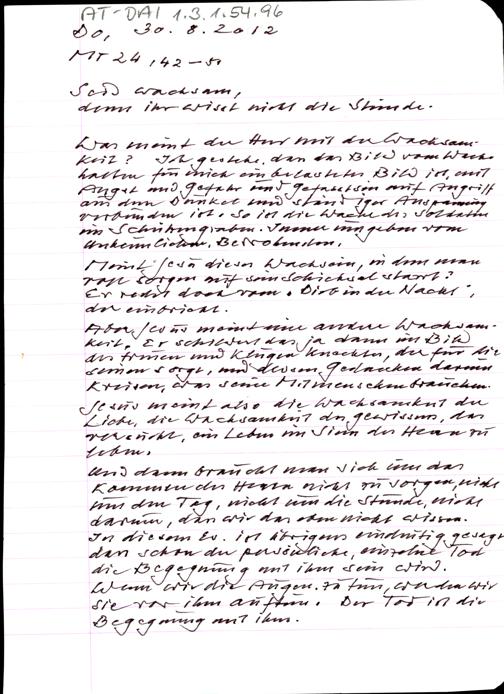 AT-DAI 1.3.1.54.96
Do, 30.8.2012
Mt 24,42-51
Seid wachsam,
denn ihr wisst nicht die Stunde.
Was meint der Herr mit der Wachsam-
keit? Ich gestehe, dass das Bild vom Wache
halten für mich ein belastetes Bild ist, mit
Angst und Gefahr und Gefasstsein auf Angriff
aus dem Dunkel und ständiger Anspannung
verbunden ist. So ist die Wache des Soldaten
im Schützengraben. Immer umgeben vom
Unheimlichen, Bedrohenden.
Meint Jesus dieses Wachsein, in dem man
voll Sorgen auf sein Schicksal starrt?
Er redet doch vom "Dieb in der Nacht",
der einbricht.
Aber Jesus meint eine andere Wachsam-
keit. Er schildert das ja dann im Bild
des treuen und klugen Knechtes, der für die
seinen sorgt, und dessen Gedanken darum
kreisen, was seine Mitmenschen brauchen.
Jesus meint also die Wachsamkeit der
Liebe, die Wachsamkeit des Gewissens, das
versucht, ein Leben im Sinn des Herrn zu
leben.
Und dann braucht man sich um das
Kommen des Herrn nicht zu sorgen, nicht
um den Tag, nicht um die Stunde, nicht
darum, dass wir das eben nicht wissen.
In diesem Ev. ist übrigens eindeutig gesagt
dass schon der persönliche, einzelne Tod
die Begegnung mit ihm sein wird.
Wenn wir die Augen zutun, werden wir
sie vor ihm auftun. Der Tod ist die
Begegnung mit ihm.